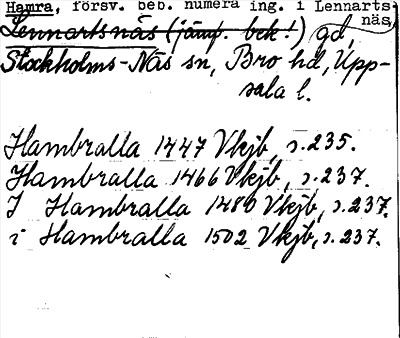 Hamra, försv. beb. numera ing. i Lennarts-
näs,
Lennartsnäs (jämp. bek!) gd,
Stockholms-Näs sn, Bro hd, Upp-
sala l.
Hambralla 1447 Vkjb, s.235.
Hambralla 1466 Vkjb, s.237.
I Hambralla 1480 Vkjb, s.237.
i Hambralla 1502 Vkjb, s.237.